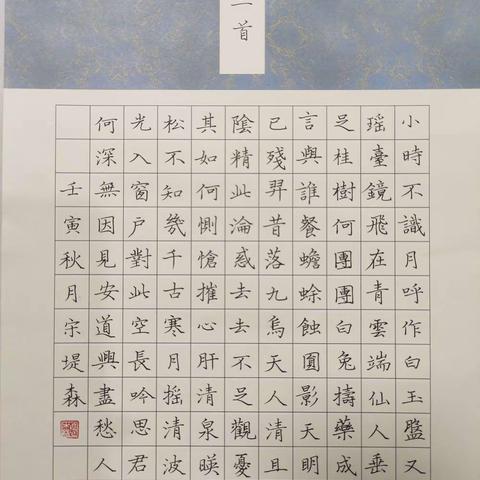 首
小時不識月呼作白玉盤又
瑶臺鏡飛在青雲端仙人垂
足桂樹何團團白兔擣藥成
言與誰餐蟾蜍蝕圓影天明
已殘羿昔落九烏天人清且
陰精此淪惑去去不足觀憂
其如何惻愴摧心肝清泉暎
松不知幾千古寒月摇清波
光入窗户對此空長吟思君
何深無因見安道興盡愁人
壬寅秋月宗堤森